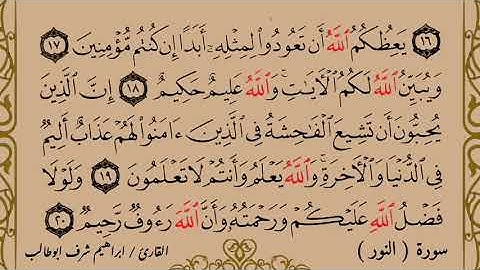 ١٦ يَعِظُكُمُ اللَّهُ أَن تَعُودُوا لِمِثْلِهِ أَبَدًا إِن كُنتُم مُّؤْمِنِينَ ١٧
وَيُبَيِّنُ اللَّهُ لَكُمُ الْآيَاتِ وَاللَّهُ عَلِيمٌ حَكِيمٌ ١٨ إِنَّ الَّذِينَ
يُحِبُّونَ أَن تَشِيعَ الْفَاحِشَةُ فِي الَّذِينَ ءَامَنُوا لَهُمْ عَذَابٌ أَلِيمٌ
فِي الدُّنْيَا وَالْآخِرَةِ وَاللَّهُ يَعْلَمُ وَأَنتُمْ لَا تَعْلَمُونَ ١٩ وَلَوْلَا
فَضْلُ اللَّهِ عَلَيْكُمْ وَرَحْمَتُهُ وَأَنَّ اللَّهَ رَءُوفٌ رَّحِيمٌ ٢٠
سورة ( النور ) القارئ / ابراهيم شرف ابوطالب